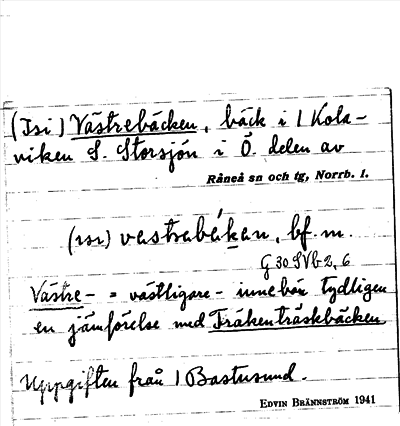 (Isi) Västrebäcken, bäck i 1 Kola-
viken S. Storsjön i Ö. delen av
Råneå sn och tg, Norrb. l.
(ısı) vastrabäkan, bf. m.
G 30 SVb 2, 6
Västre- = västligare- innebär tydligen
en jämförelse med Fräkenträskbäcken
Uppgiften från 1 Bastusund.
EDVIN BRÄNNSTRÖM 1941